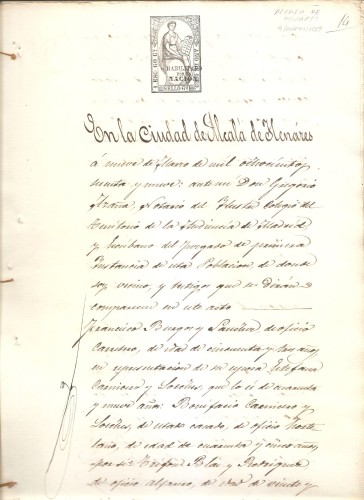 14
HABILITADO
POR LA
NACION
En la Ciudad de Alcalá de Henáres
á nueve de Marzo de mil ochocientos
sesenta y nueve: ante mi Don Gregorio
Azaña, Notario del Ilustre Colegio del
territorio de la Audiencia de Madrid
y Escribano del juzgado de primera
instancia de esta Poblacion, de donde
soy vecino, y testigos que se dirán
comparecen en este acto
Francisco Burgos y Sanchez de oficio
Cantero, de edad de cincuenta y tres años,
en representacion de su esposa Estefana
Carnicero y Loeches, que lo es de cuarenta
y nueve años: Bonifacio Carnicero y
Loeches, de estado casado, de oficio Horte
lano, de edad de cincuenta y cinco años,
por si: Trifon Blas y Rodriguez
de oficio Alfarero, de edad de veinte y